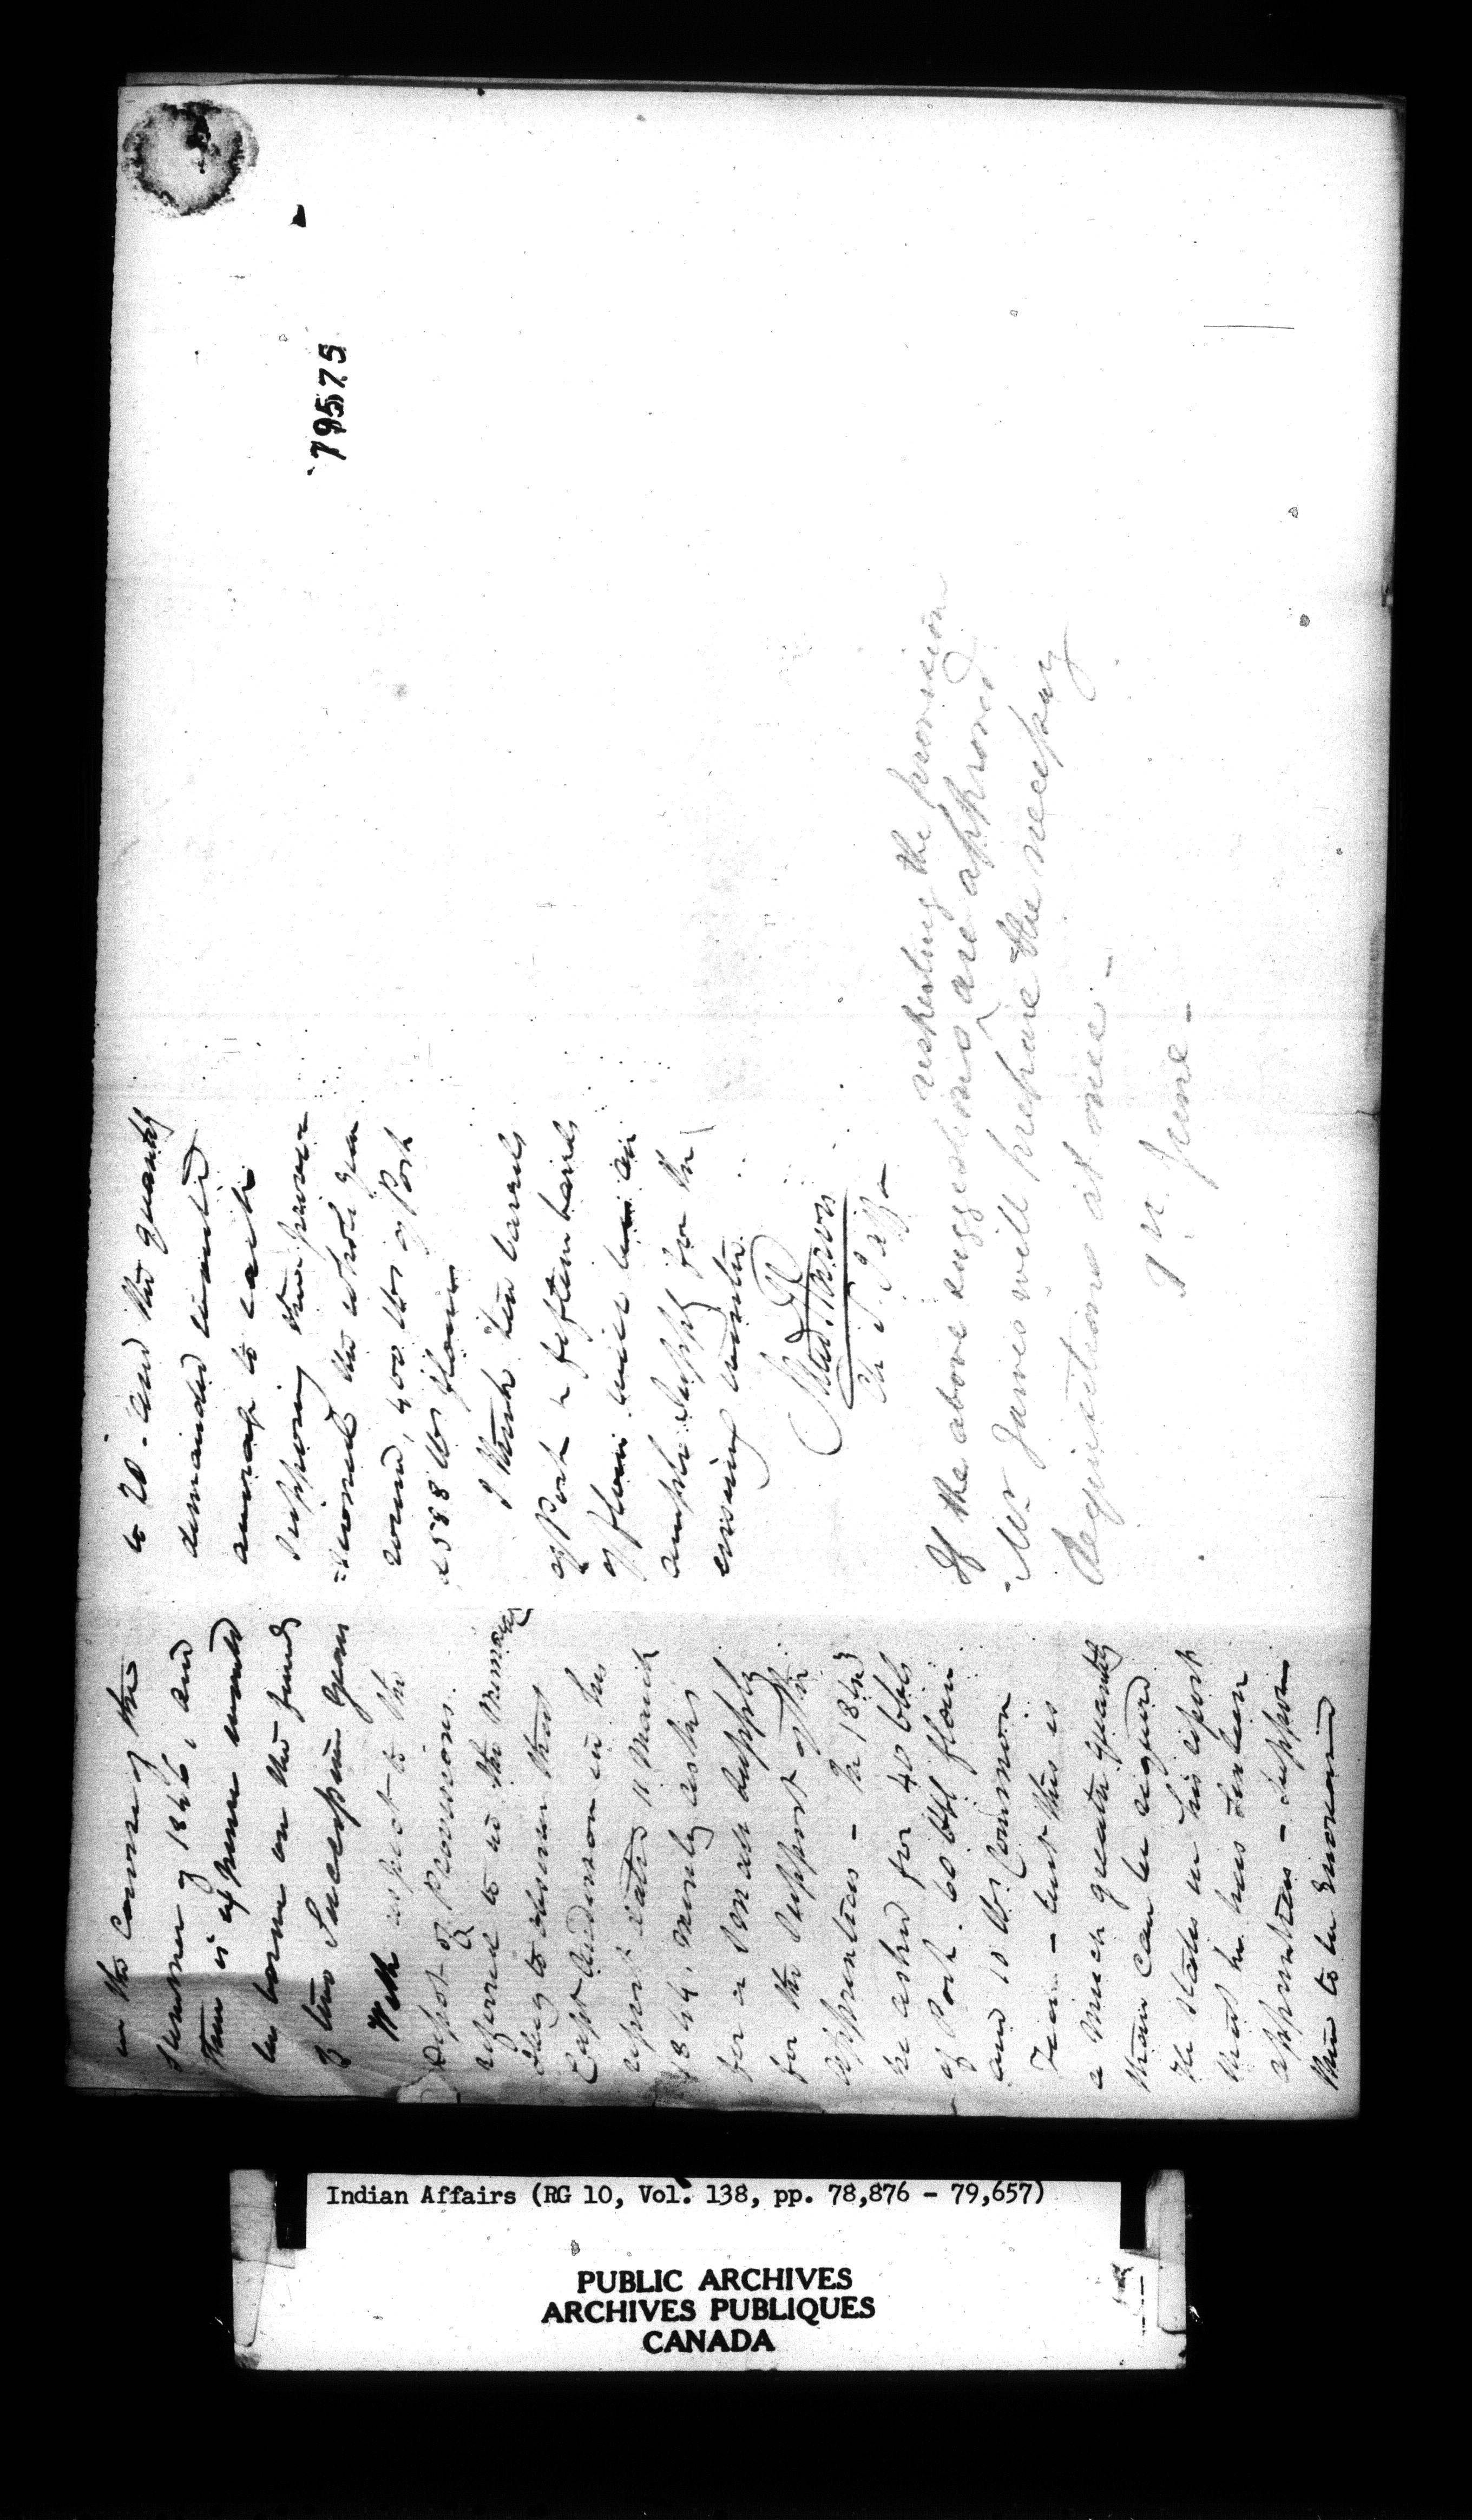 in the Course of the
Summer of 1846, and
thus is expense would
be borne on the funds
of two Successive years
With respect to the
Depot of Provisions
referred to in the Memo
beg to observe that
Capt Anderson in his
report dated 11 March
1844, merely asks
for a small supply
for the support of the
apprentices - In 1843
he asked for 40 bbls
of Pork. 60 bbl flour
and 10 lb Common
Tea - but this is
a much greater quantity
than can be required
He states in his report
that he has Indian
apprentices - Suppose
them to be increased
to 20. and the quantity
demanded would
amount to each
supposing them provi-
=sioned the whole year
round, 400 lbs of Pork
& 588 lbs flour
I think ten barrels
of Pork & fifteen barrels
of flour will be an
ample supply for the
ensuing winter.
79575
respecting the provision
If the above suggestions are approved
Mr James will prepare the necessary
Requisitions at once -
June -
Indian Affairs (RG 10, Vol. 138, pp. 78,876 - 79,657)
PUBLIC ARCHIVES
ARCHIVES PUBLIQUES
CANADA